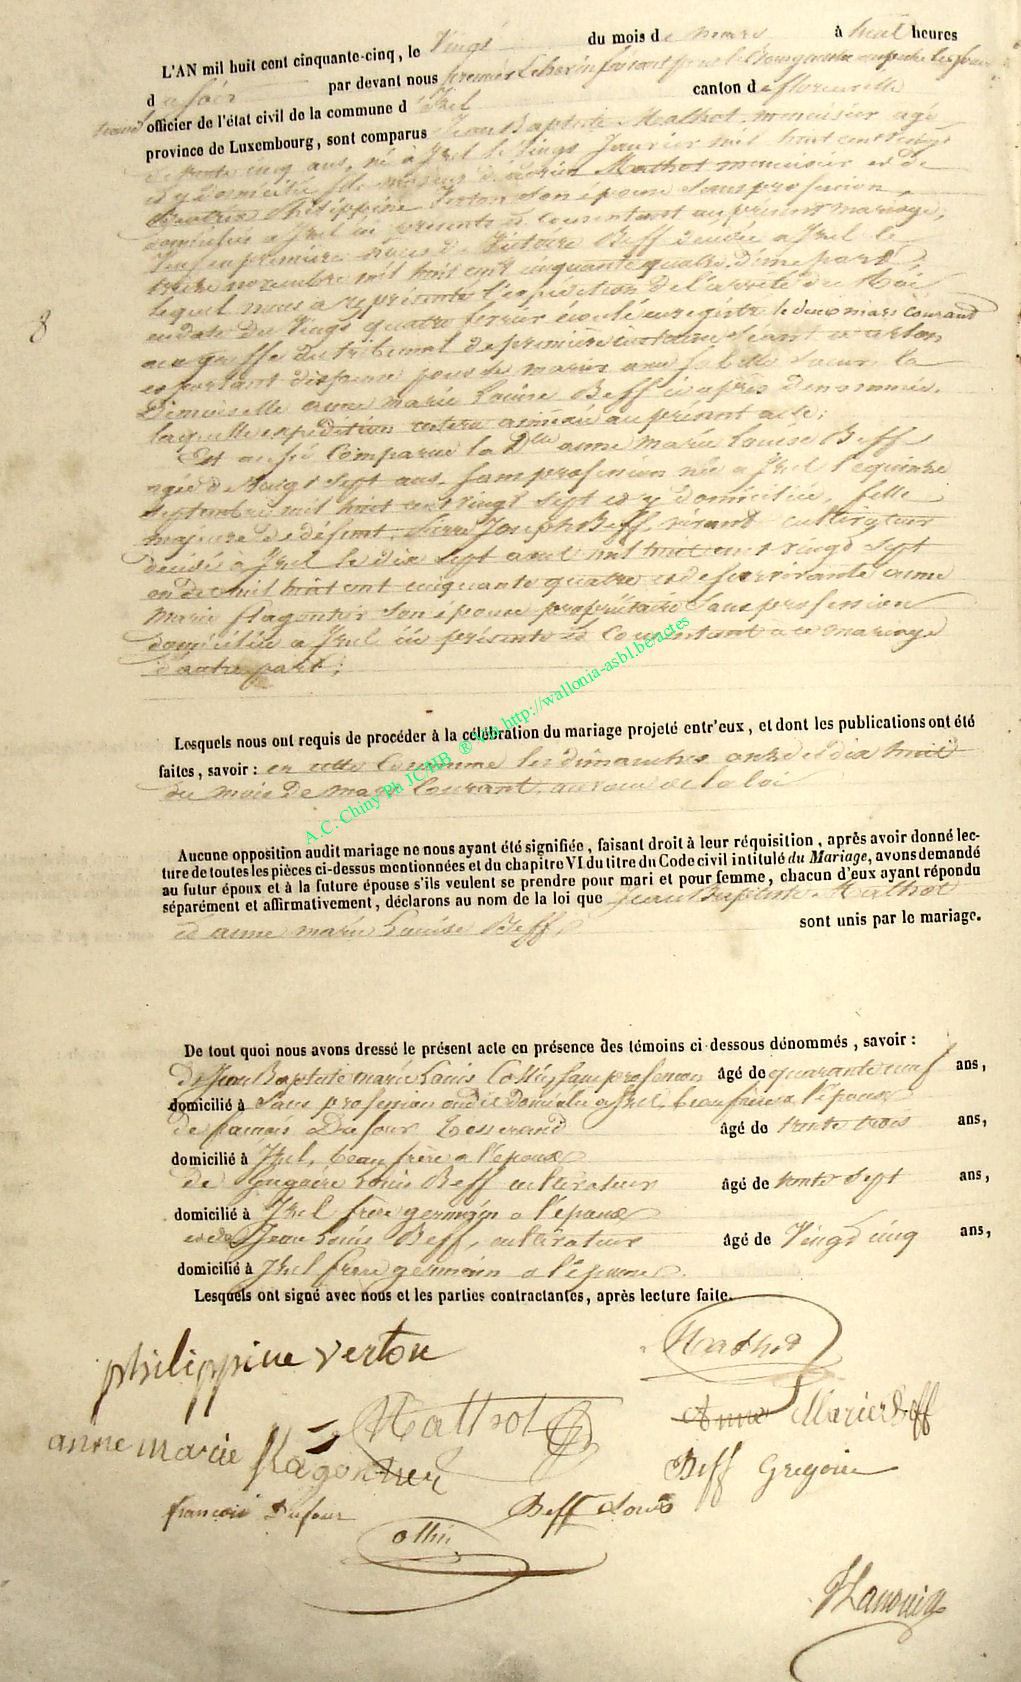 L'AN mil huit cent cinquante-cinq, le Vingt du mois de mars à huit heures
du soir par devant nous premier Echevin faisant pour le Bourgmestre
officier de l'état civil de la commune d'Izel canton de florenville
province de Luxembourg, sont comparus Jean Baptiste Mathot menuisier agé
de trente cinq ans, né à Izel le vingt Janvier mil huit cent vingt
et y domicilié fils majeur d' Mathot menuisier et de
Philippine Verton son épouse sans profession,
domiciliés à Izel ici présents et consentant au présent mariage,
Veuf en première noces de Victoire Beff décédée à Izel le
treize novembre mil huit cent cinquante quatre d'une part,
lequel nous a représenté l'expédition de l'arrêté du Roi
en date du Vingt quatre fevrier écoulé enregistré le deux mars courant
au greffe du tribunal de première instance séant à arlon
et portant dispense pour se marier avec sa belle soeur, la
Demoiselle anne marie Louise Beff ci après dénommée,
laquelle expédition restera annexée au présent acte;
Est aussi Comparue la Dlle anne marie Louise Beff
agée de Vingt sept ans, sans profession née à Izel le quinze
septembre mil huit cent vingt sept et y domiciliée, fille
majeure de défunt Pierre Joseph Beff, vivant cultivateur
décédé à Izel le dix sept aout mil huit cent vingt sept
mil huit cent cinquante quatre et de survivante anne
Marie flagontier son épouse propriétaire sans profession
domiciliée à Izel ici présente et Consentant à ce mariage
d'autre part;
Lesquels nous ont requis de procéder à la célébration du mariage projeté entr'eux, et dont les publications ont été
faites, savoir: en cette Commune les dimanches onze et dix huit
du mois de mars Courant, au voeu de la loi
Aucune opposition audit mariage ne nous ayant été signifiée, faisant droit à leur réquisition, après avoir donné lec-
ture de toutes les pièces ci-dessus mentionnées et du chapitre VI du titre du Code civil intitulé du Mariage, avons demandé
au futur époux et à la future épouse s'ils veulent se prendre pour mari et pour femme, chacun d'eux ayant répondu
séparément et affirmativement, déclarons au nom de la loi que Jean Baptiste Mathot
et anne marie Louise Beff, sont unis par le mariage.
De tout quoi nous avons dressé le présent acte en présence des témoins ci-dessous dénommés, savoir:
De Jean Baptiste marie Louis sans profession âgé de quarante neuf ans,
domicilié à sans profession domicilié à Izel, beau frère à l'époux
de françois Dufour Tisserand âgé de trente trois ans,
domicilié à Izel, beau frère à l'époux
de Grégoire Louis Beff cultivateur âgé de trente sept ans,
domicilié à Izel frère germain à l'épouse
et de Jean Louis Beff, cultivateur âgé de Vingt cinq ans,
domicilié à Izel frère germain à l'épouse.
Lesquels ont signé avec nous et les parties contractantes, après lecture faite.
philippine verton Mathot
Mathot Anne Marie Beff
anne marie flagontier Beff Gregoire
françois Dufour Beff Louis
A.C. Chiny Ph JC HB ® Via http://wallonia-asbl.be/actes
8